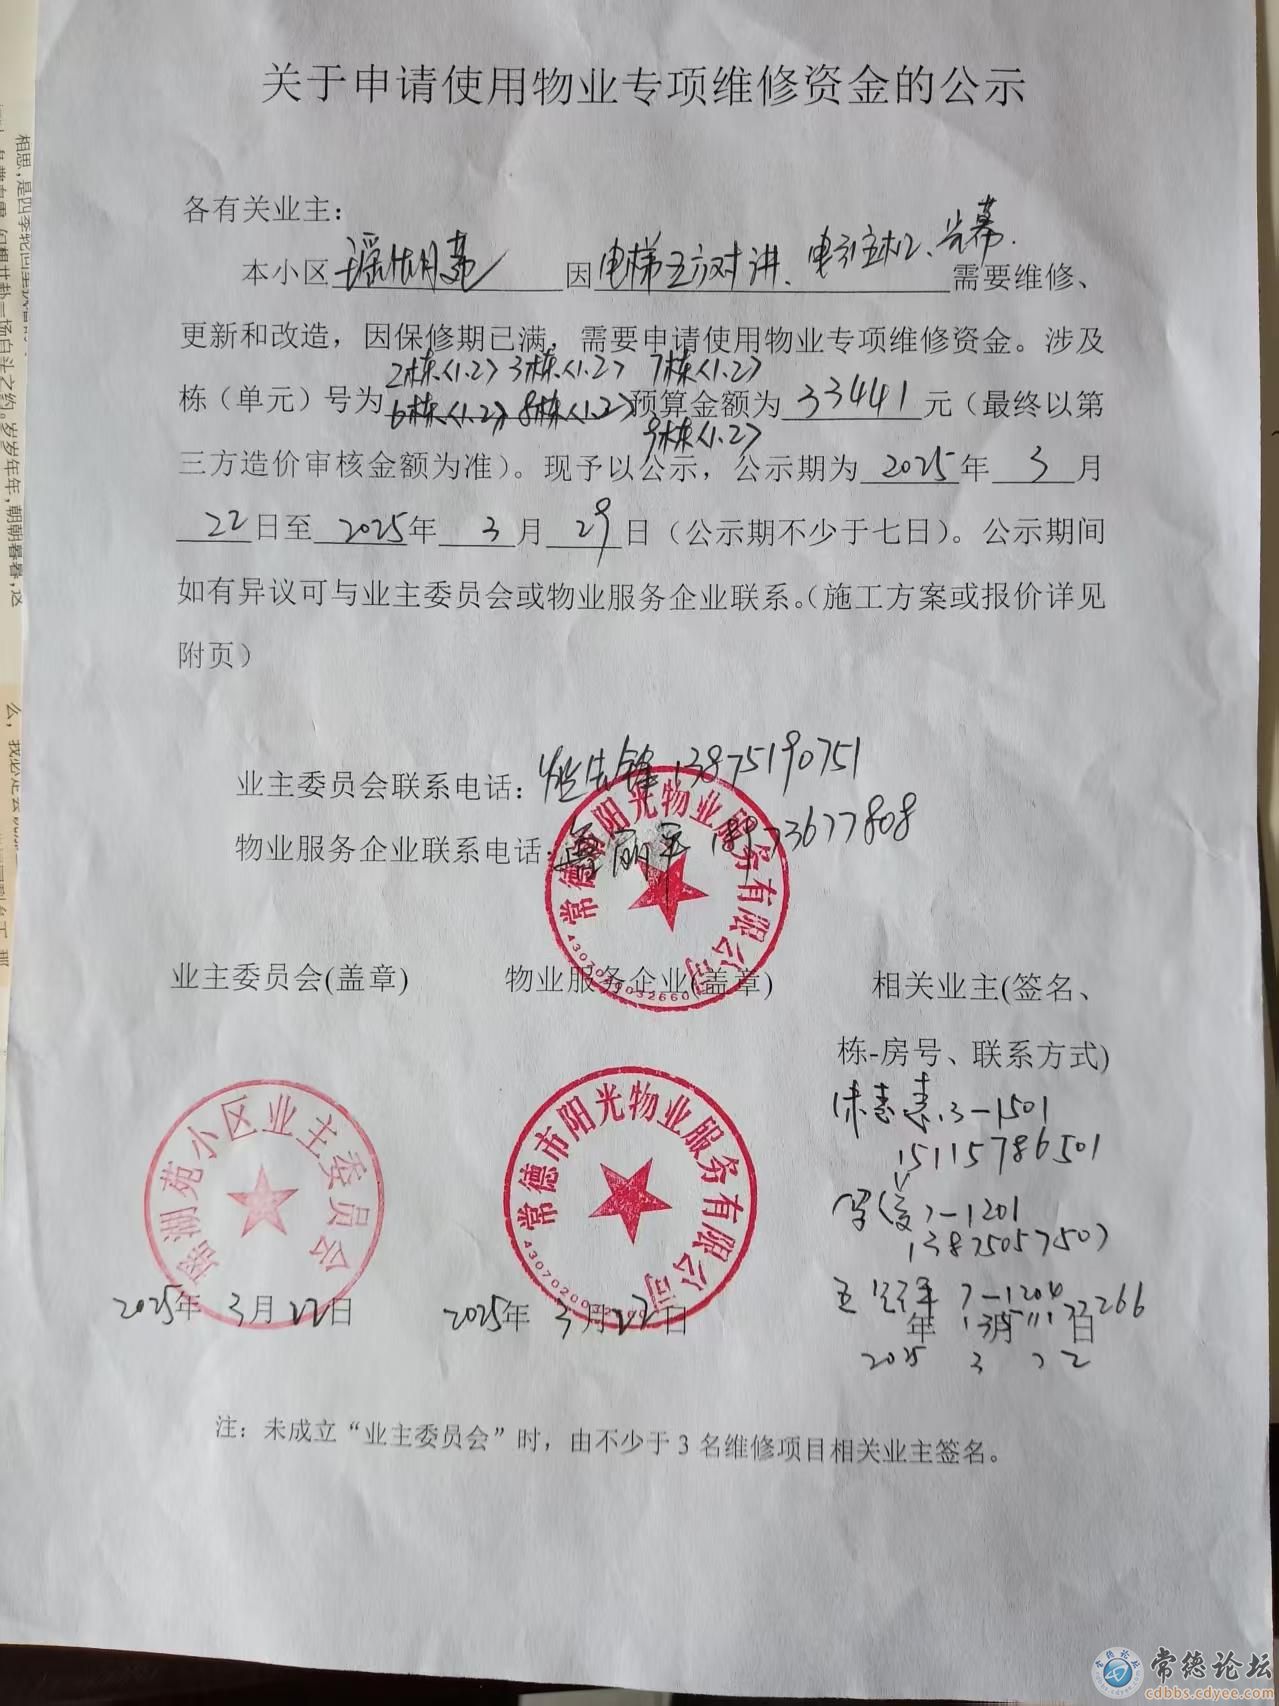 关于申请使用物业专项维修资金的公示
各有关业主：
本小区瑶湖苑因电梯五方对讲、电引主机、光幕.需要维修、
更新和改造，因保修期已满，需要申请使用物业专项维修资金。涉及
2栋<1.2> 3栋<1.2> 7栋<1.2>
栋（单元）号为6栋<1.2> 8栋<1.2>预算金额为33441元（最终以第
9栋<1.2>
三方造价审核金额为准）。现予以公示，公示期为2025年3月
22日至2025年3月29日（公示期不少于七日）。公示期间
如有异议可与业主委员会或物业服务企业联系。（施工方案或报价详见
附页）
业主委员会联系电话：锋 13875190751
物业服务企业联系电话：丽平 18973677808
常德市阳光物业服务有限公司
业主委员会(盖章)
物业服务企业(盖章)
相关业主(签名、
栋-房号、联系方式)
3-1501
15115786501
7-1201
13875057507
王 7-1204
瑶湖苑小区业主委员会
常德市阳光物业服务有限公司
2025年3月22日
2025年3月22日
年 月 日
2025 3 22
注：未成立“业主委员会”时，由不少于3名维修项目相关业主签名。
常德论坛
cdbbs.cdyee.com